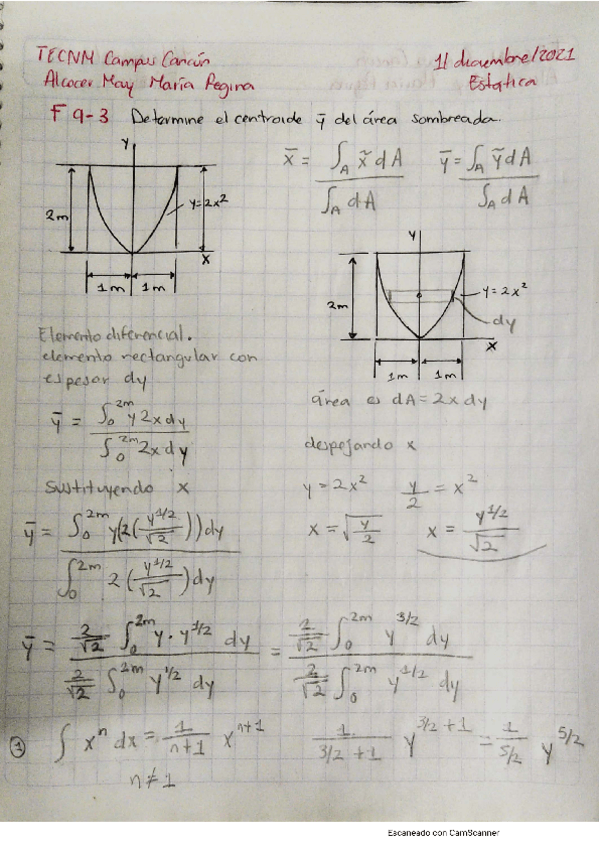 TECNM Campus Cancún
11 diciembre/2021
Alcocer May María Regina
Estatica
F 9-3 Determine el centroide ȳ del área sombreada.
x̄ = ∫_A x̃ dA / ∫_A dA
ȳ = ∫_A ỹ dA / ∫_A dA
Y
2m
y=2x²
X
1m 1m
Y
2m
y=2x²
dy
X
1m 1m
Elemento diferencial.
elemento rectangular con
espesor dy
área es dA = 2x dy
ȳ = ∫₀^2m y 2x dy / ∫₀^2m 2x dy
despejando x
sustituyendo x
y = 2x² y/2 = x²
x = √(y/2) x = y^1/2 / √2
ȳ = ∫₀^2m y(2(y^1/2 / √2)) dy / ∫₀^2m 2(y^1/2 / √2) dy
ȳ = 2/√2 ∫₀^2m y · y^1/2 dy / 2/√2 ∫₀^2m y^1/2 dy = 2/√2 ∫₀^2m y^3/2 dy / 2/√2 ∫₀^2m y^1/2 dy
① ∫ xⁿ dx = 1/(n+1) x^n+1 1/(3/2 +1) y^3/2 +1 = 1/(5/2) y^5/2
n ≠ 1
Escaneado con CamScanner